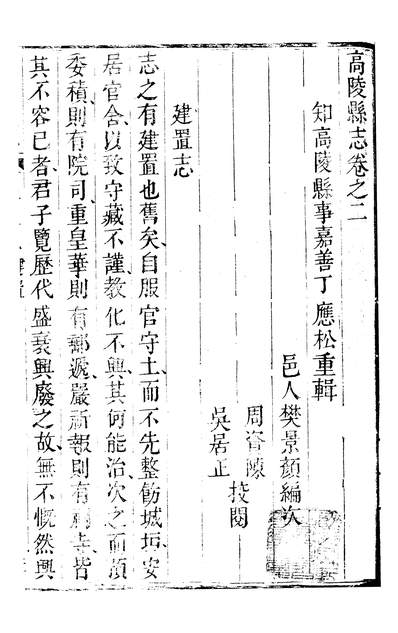 高陵縣志卷之二
知高陵縣事嘉善丁應松重輯
邑人樊景顏編次
周資陳
吳居正
校閱
建置志
志之有建置也舊矣自服官守土而不先整飭城垣安
居官舍以致守藏不謹教化不興其何能治次之而須
委積則有院司重皇華則有郵遞嚴祈報則有 寺皆
其不容已者君子覽歷代盛衰興廢之故無不慨然興
建置